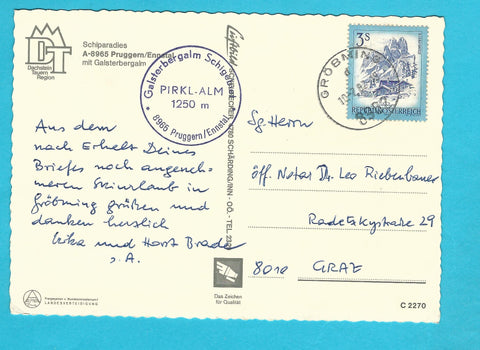 DT
Dachstein
Tauern
Region
Schiparadies
A-8965 Pruggern/Ennstal
mit Galsterbergalm
Galsterbergalm Schigebiet
PIRKL-ALM
1250 m
8965 Pruggern/Ennstal
GRÖBMING
3S
REPUBLIK ÖSTERREICH
Aus dem
nach Erhalt Deines
Briefes noch angeneh-
meren Skiurlaub in
Gröbming grüßen und
danken herzlich
und Horst
Sg. Herrn
öff. Notar Dr. Leo Riebenbauer
Radetzkystraße 29
8010 GRAZ
SCHÄRDING/INN - OÖ. - TEL.
LANDESVERTEIDIGUNG
Das Zeichen
für Qualität
C 2270